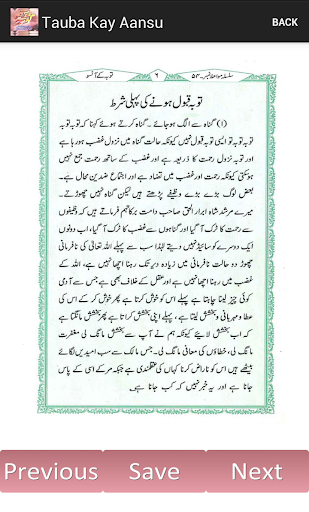 Tauba Kay Aansu
BACK
سلسلہ مواعظ نمبر۔۵۴ ۶ توبہ کے آنسو
توبہ قبول ہونے کی پہلی شرط
(۱) گناہ سے الگ ہو جائے۔ گناہ کرتے ہوئے کہنا کہ توبہ توبہ
توبہ توبہ تو ایسی توبہ قبول نہیں کیونکہ حالت گناہ میں نزول غضب ہو رہا ہے
اور توبہ نزول رحمت کا ذریعہ ہے اور غضب کے ساتھ رحمت جمع نہیں
ہو سکتی کیونکہ رحمت اور غضب میں تضاد ہے اور اجتماع ضدین محال ہے۔
بعض لوگ بڑے بڑے وظیفے پڑھتے ہیں لیکن گناہ نہیں چھوڑتے۔
میرے مرشد شاہ ابرار الحق صاحب دامت برکاتہم فرماتے ہیں کہ وظیفوں
سے رحمت کا ٹرک آ گیا اور گناہوں سے غضب کا ٹرک آ گیا، اب دونوں
ایک دوسرے کو سائیڈ نہیں دیتے لہٰذا سب سے پہلے اللہ تعالیٰ کی نافرمانی
چھوڑ دو حالت نافرمانی میں زیادہ دیر تک رہنا اچھا نہیں ہے، اللہ کے
غضب میں رہنا اچھا نہیں ہے اور عقل کے خلاف بھی ہے جس سے آدمی
کوئی چیز لینا چاہتا ہے پہلے اس کو خوش کرتا ہے پھر خوش کر کے اس کی
عطا و مہربانی و بخشش لیتا ہے، پہلے اپنی بخشش کراتا ہے پھر بخشش مانگتا ہے
کہ اب بخشش لائیے کیونکہ ہم نے آپ سے بخشش مانگ لی مغفرت
مانگ لی، خطاؤں کی معافی مانگ لی۔ جس مالک سے سب امیدیں لگائے
بیٹھے ہیں اس کو ناراض کرنا کہاں کی عقلمندی ہے جبکہ مر کے اسی کے پاس
جانا ہے اور یہ خبر نہیں کہ کب جانا ہے۔
Previous
Save
Next